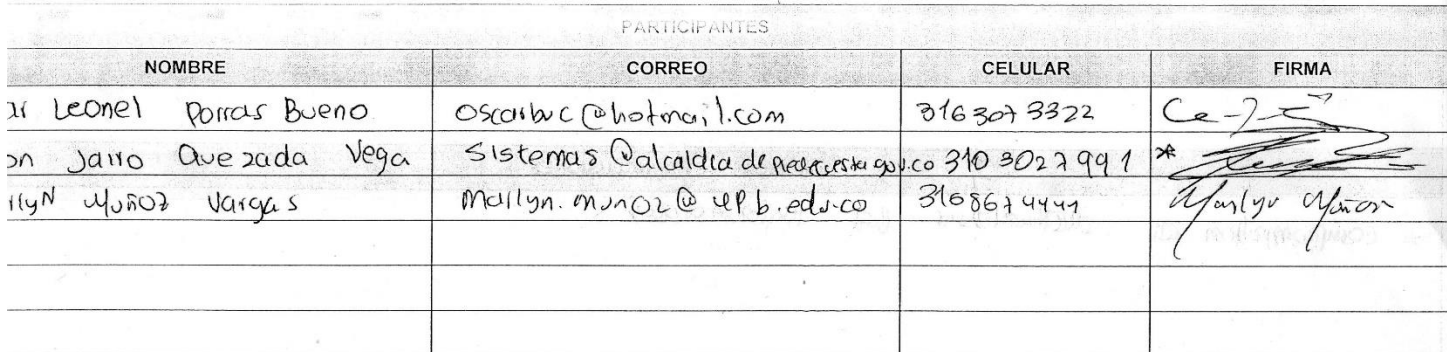 PARTICIPANTES
NOMBRE CORREO CELULAR FIRMA
ar Leonel Porras Bueno oscarbuc@hotmail.com 316 307 3322
on Jairo Quezada Vega Sistemas@alcaldiadepiedecuesta.gov.co 310 3027991 *
rllyN Muñoz Vargas Marllyn.munoz@upb.edu.co 3168674441 Marlyn Muñoz